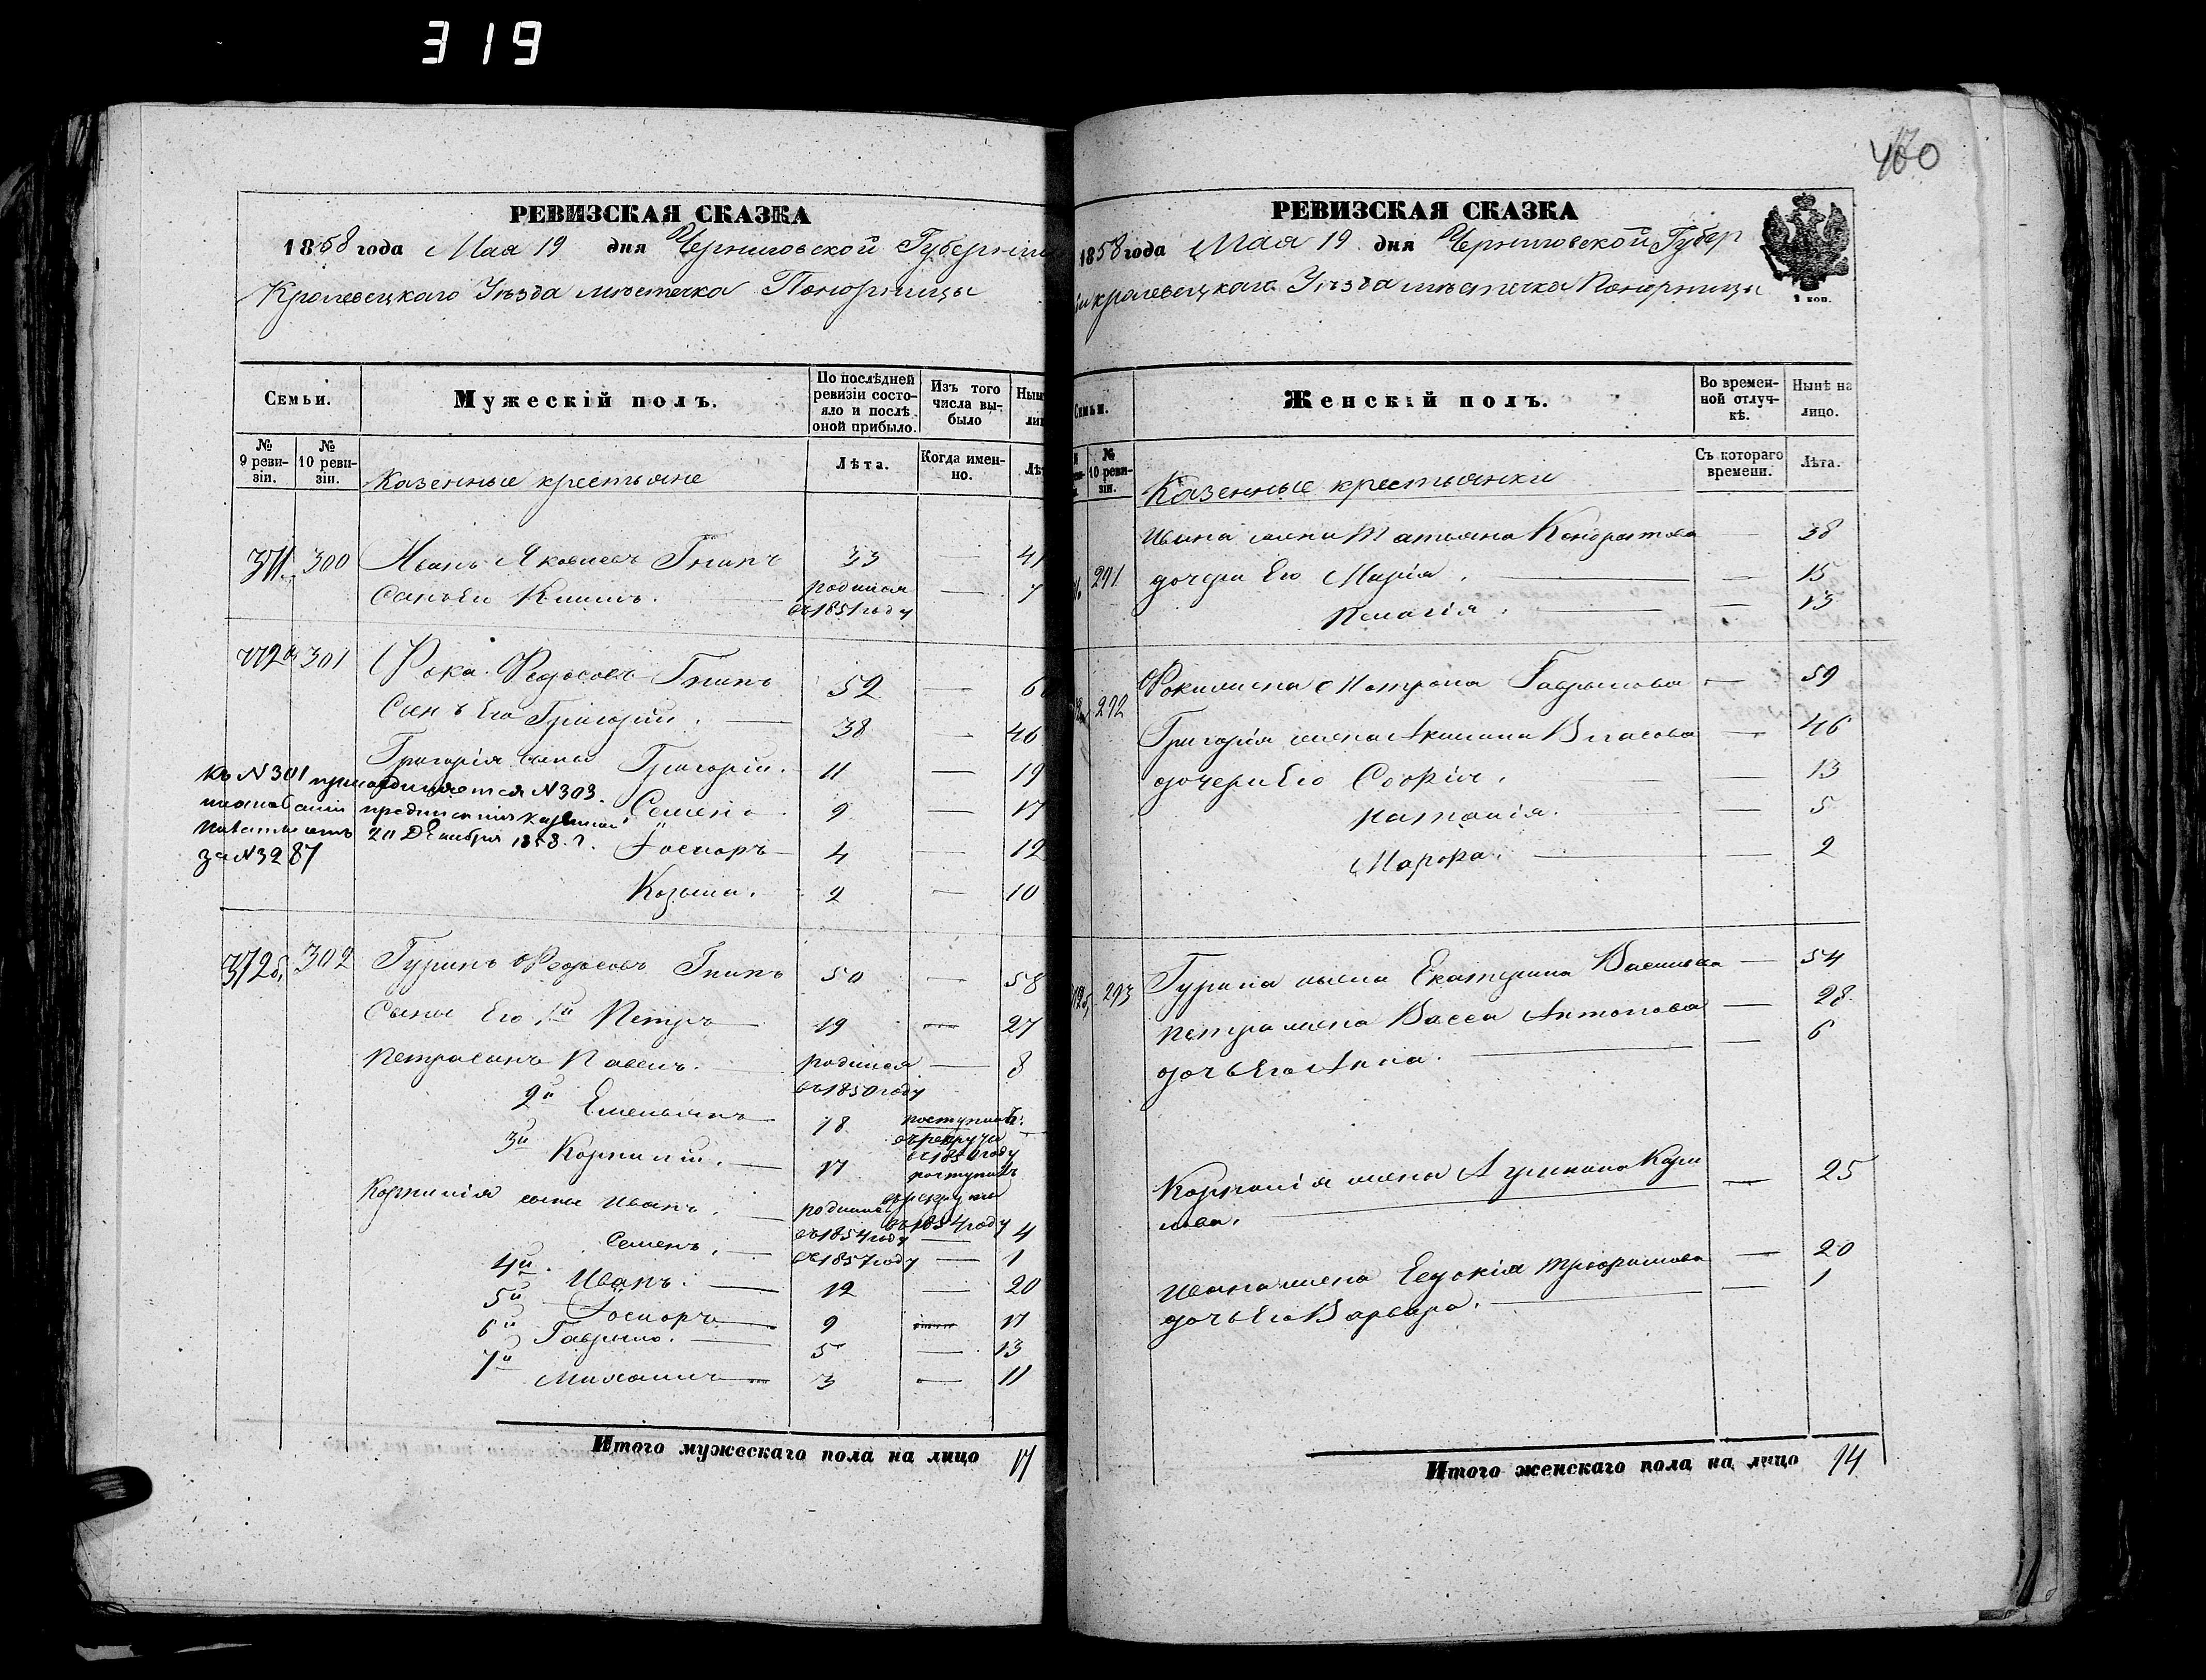 319
РЕВИЗСКАЯ СКАЗКА
1858 года Мая 19 дня Черниговской Губерніи
Кролевецкаго Уѣзда мѣстечка Понорницы
Семьи.
Мужескій полъ.
По послѣдней ревизіи состо-
яло и послѣ
оной прибыло.
Изъ того
числа вы-
было
№
9 реви-
зіи.
№
10 реви-
зіи.
Казенные крестьяне
Лѣта.
Когда имен-
но.
371. 300 Иванъ Яковлевъ Гнипъ 33 — 41
Сынъ Его Климъ. родился въ 1851 году — 7
372 а 301 Фока Федосовъ Гнипъ 52 — 6
Сынъ Его Григорій. 38 — 46
Григорія сыны Григорій. 11 — 19
Семенъ 9 — 17
Іосипъ 4 — 12
Козьма. 2 — 10
Къ N 301 присоединяется N 303.
предписанія Казенной
Палаты отъ 20 Декабря 1858. г.
за N 3287
372 б, 302 Гуринъ Федосовъ Гнипъ 50 — 58
Сыны Его 1й Петръ 19 — 27
Петра сынъ Павелъ. родился въ 1850 году — 8
2й Емельянъ 18 поступилъ въ рекруты въ 1850 году
3й Корнилій. 17 поступилъ въ рекруты въ 1854 году
Корнилія сыны Иванъ. родился въ 1854 году — 4
Семенъ. въ 1857 году — 1
4й Иванъ. 12 — 20
5й 9 — 17
6й Гаврило. 5 — 13
7й Михаилъ 3 — 11
Итого мужескаго пола на лицо 17
РЕВИЗСКАЯ СКАЗКА
1858 года Мая 19 дня Черниговской Губер
ніи Кролевецкаго Уѣзда мѣстечка Понорницы
2 коп.
Семьи.
Женскій полъ.
Во времен-
ной отлуч-
кѣ.
Нынѣ на
лицо.
№
10 реви-
зіи.
Казенные крестьянки
Съ котораго
времени.
Лѣта.
291 Ивана жена Татьяна Кондратова — 38
дочери Его Марія. — 15
Пелагія. — 13
292 Фоки жена Матрона Гаврилова — 59
Григорія жена Акилина Власова — 46
дочери Его Софія. — 13
Наталія. — 5
Марфа. — 2
293 Гурина жена Екатерина Васильева — 54
Петра жена Васса Антонова — 28
дочь Его Анна. — 6
Корнилія жена Кири
лова. — 25
Ивана жена Евдокія Трофимова — 20
дочь Его Варвара. — 1
Итого женскаго пола на лицо 14